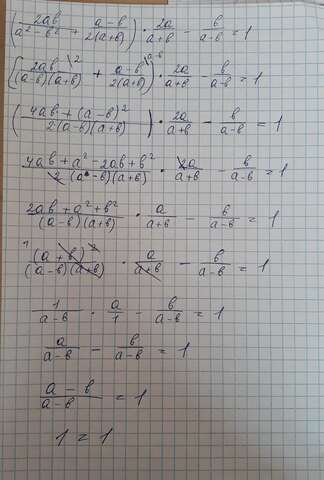 (2ab/(a²-b²) + (a-b)/(2(a+b))) · 2a/(a+b) - b/(a-b) = 1
[2ab\2/((a-b)(a+b)) + (a-b)\a-b/(2(a+b))) · 2a/(a+b) - b/(a-b) = 1
((4ab+(a-b)²)/(2(a-b)(a+b))) · 2a/(a+b) - b/(a-b) = 1
(4ab+a²-2ab+b²)/(2(a-b)(a+b)) · 2a/(a+b) - b/(a-b) = 1
(2ab+a²+b²)/((a-b)(a+b)) · a/(a+b) - b/(a-b) = 1
1 (a+b)²/((a-b)(a+b)) · a/(a+b) - b/(a-b) = 1
1/(a-b) · a/1 - b/(a-b) = 1
a/(a-b) - b/(a-b) = 1
(a-b)/(a-b) = 1
1 = 1